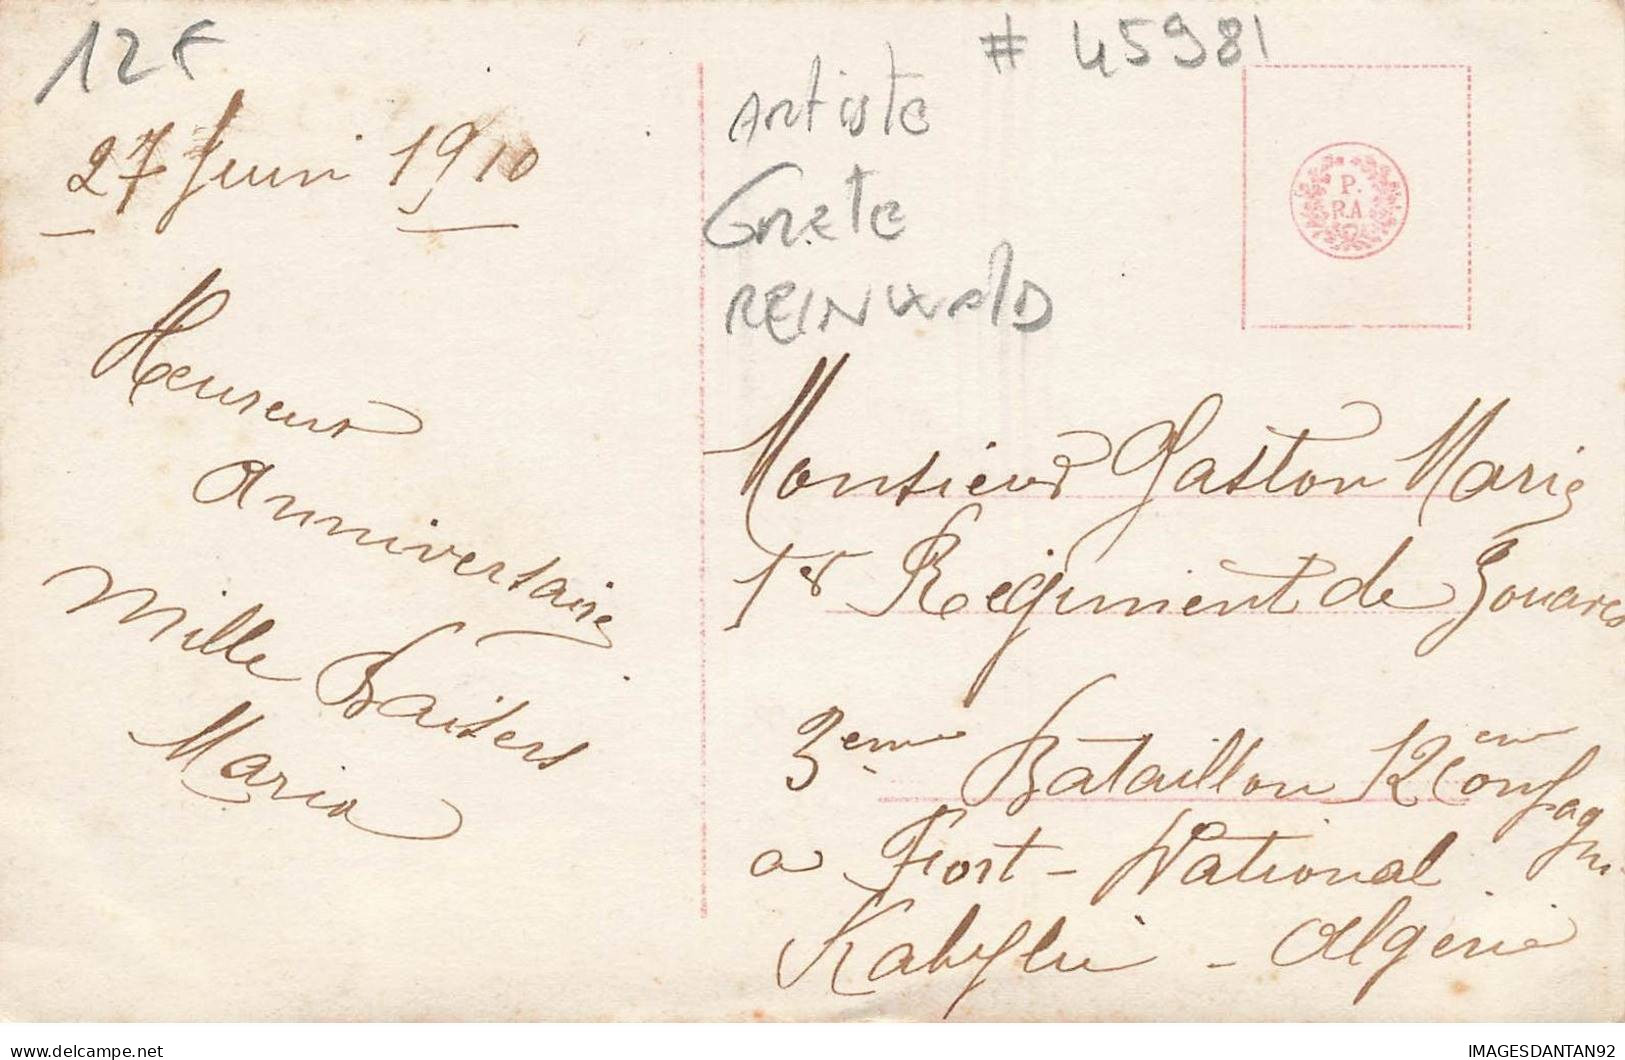 12F
27 Juin 1910
Heureux
Anniversaire
Mille Baisers
Maria
# 45981
Artiste
Grete
REINWALD
P.
R.A.
Monsieur Gaston Marie
1er Régiment de Zouaves
3eme Bataillon 12eme Compagnie
a Fort-National
Kabylie - Algérie
delcampe.net
IMAGESDANTAN92